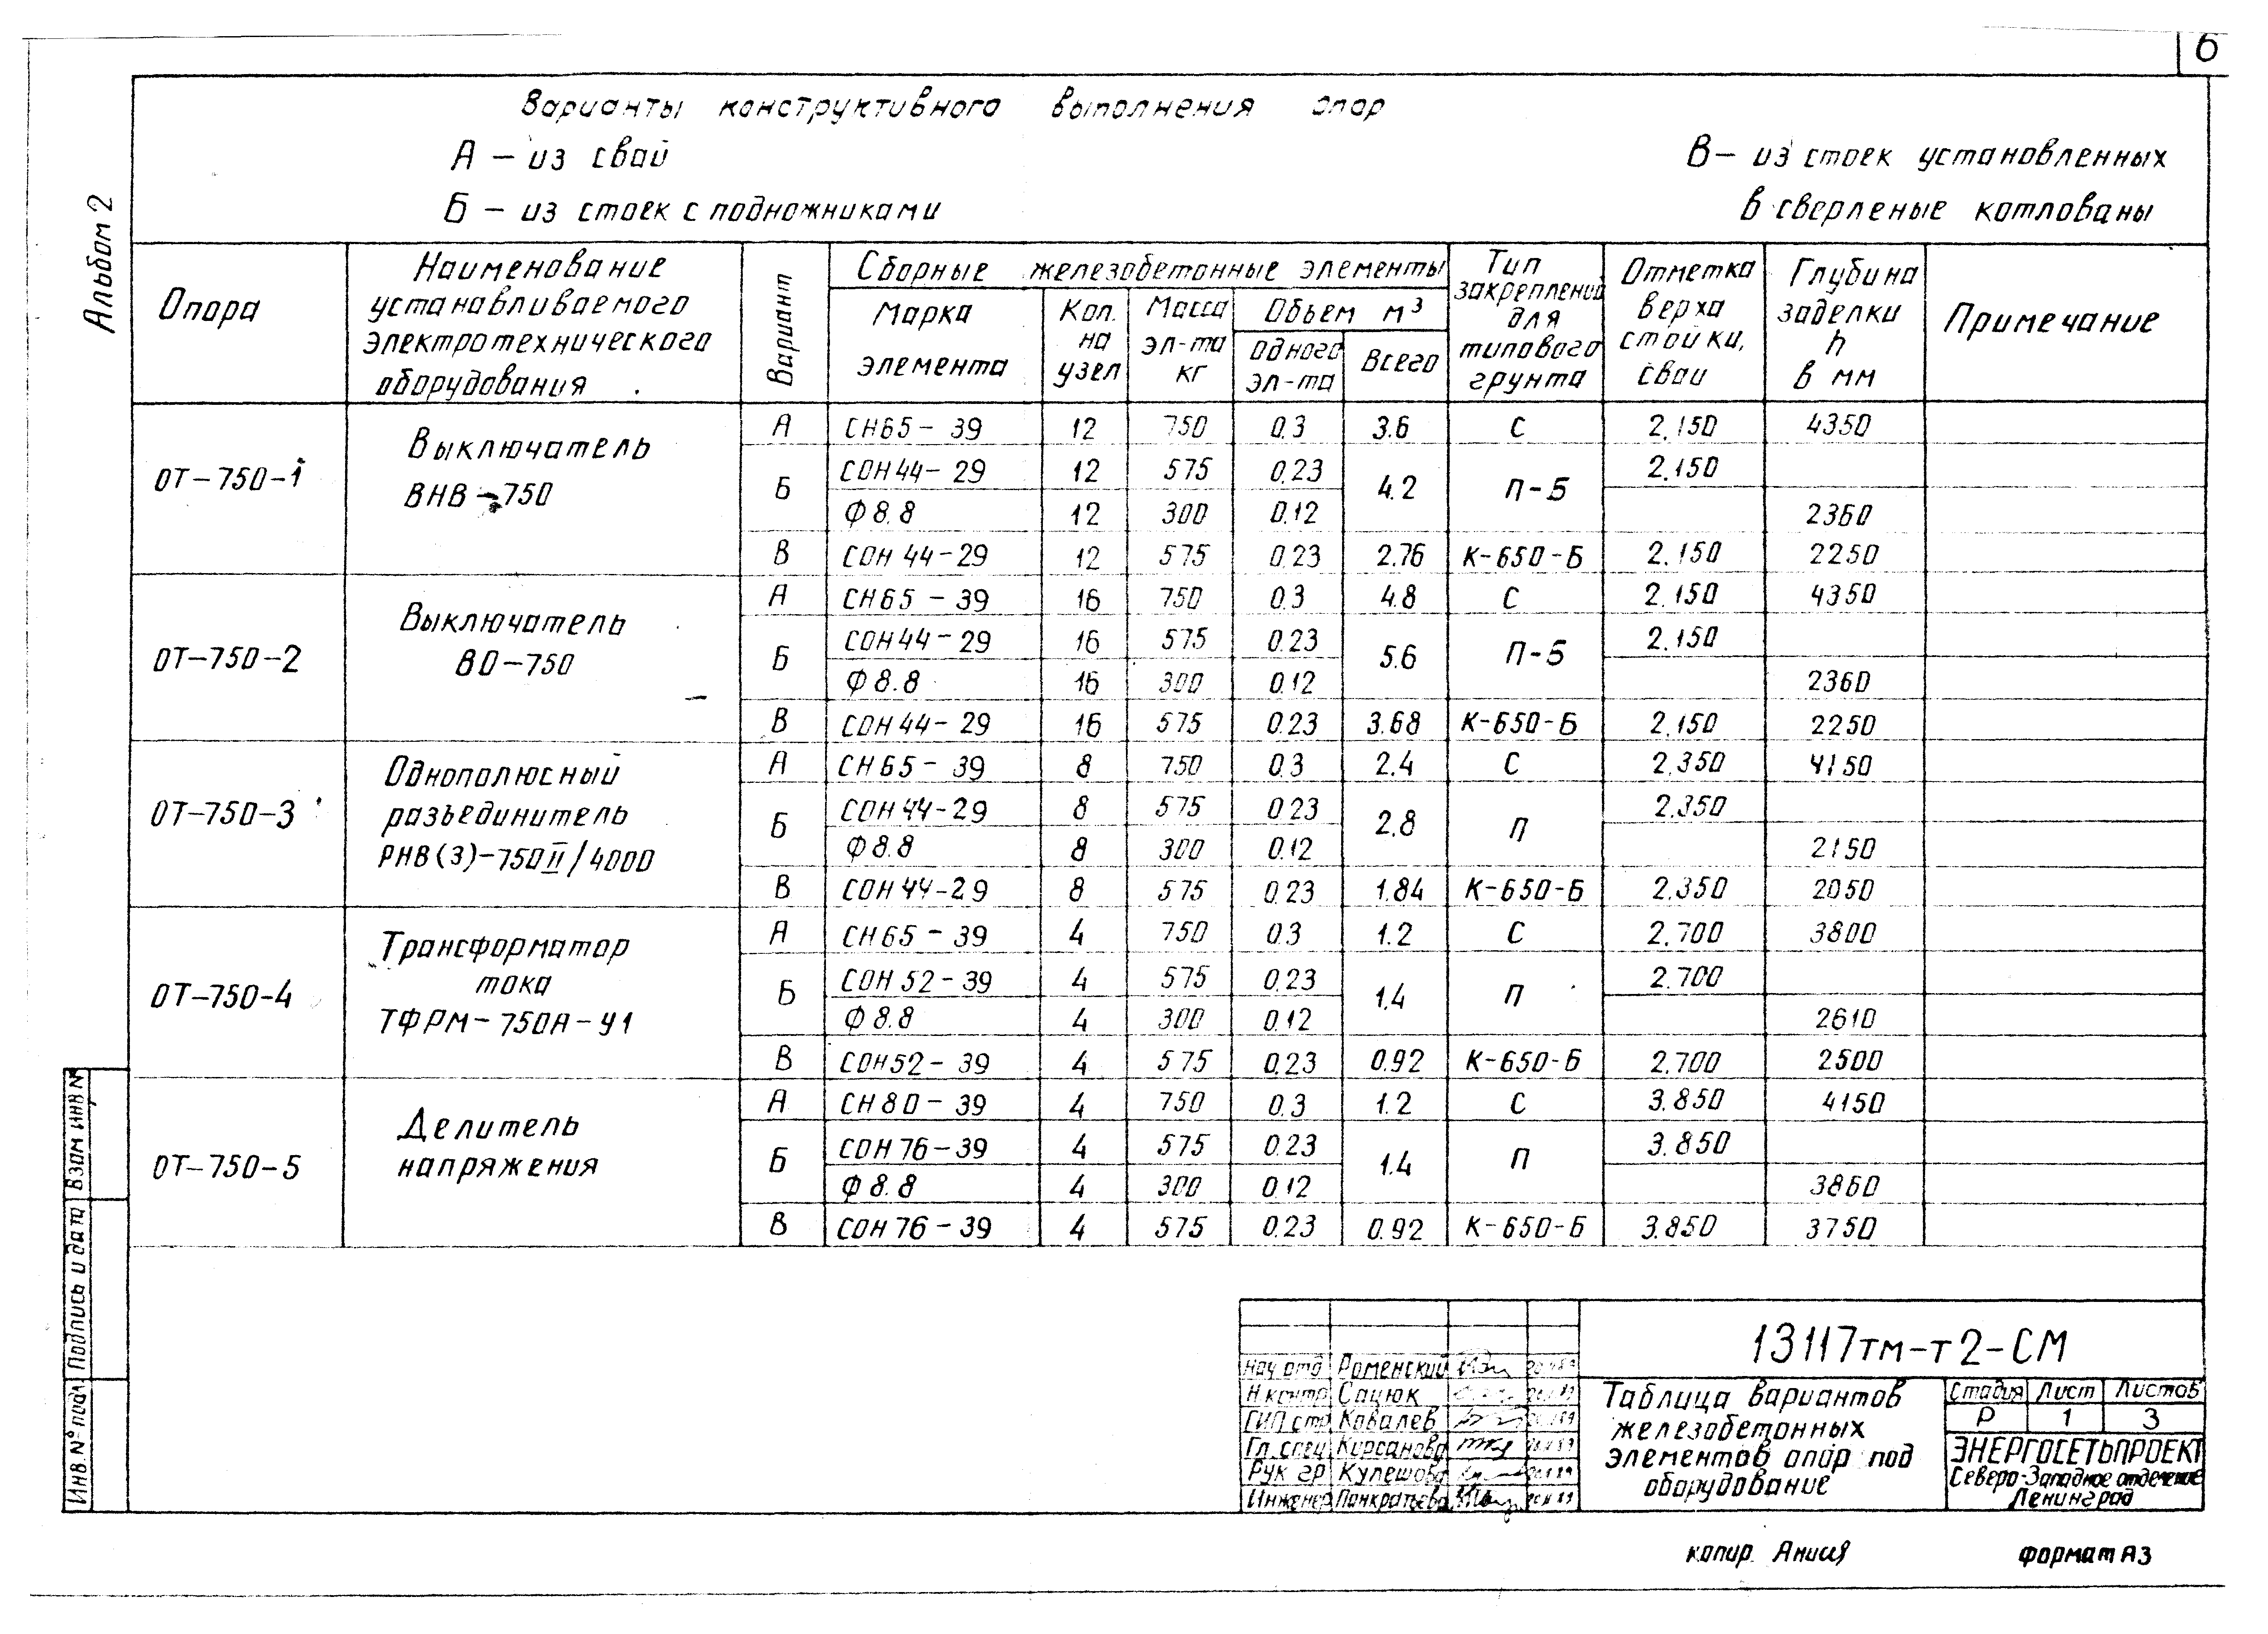 6
Альбом 2
Варианты конструктивного выполнения опор
А – из свай
Б – из стоек с подножниками
В – из стоек установленных
в сверленые котлованы
Опора
Наименование
устанавливаемого
электротехнического
оборудования
Вариант
Сборные железобетонные элементы
Марка
элемента
Кол.
на
узел
Масса
эл-та
кг
Объем м³
Одного
эл-та
Всего
Тип
закреплений
для
типового
грунта
Отметка
верха
стойки,
сваи
Глубина
заделки
h
в мм
Примечание
ОТ-750-1
Выключатель
ВНВ-750
А СН65-39 12 750 0.3 3.6 С 2.150 4350
Б СОН44-29 12 575 0.23 4.2 П-5 2.150
Ф8.8 12 300 0.12 2360
В СОН 44-29 12 575 0.23 2.76 К-650-Б 2.150 2250
ОТ-750-2
Выключатель
ВО-750
А СН65-39 16 750 0.3 4.8 С 2.150 4350
Б СОН44-29 16 575 0.23 5.6 П-5 2.150
Ф8.8 16 300 0.12 2360
В СОН44-29 16 575 0.23 3.68 К-650-Б 2.150 2250
ОТ-750-3
Однополюсный
разъединитель
РНВ(З)-750II/4000
А СН65-39 8 750 0.3 2.4 С 2.350 4150
Б СОН44-29 8 575 0.23 2.8 П 2.350
Ф8.8 8 300 0.12 2150
В СОН44-29 8 575 0.23 1.84 К-650-Б 2.350 2050
ОТ-750-4
Трансформатор
тока
ТФРМ-750А-У1
А СН65-39 4 750 0.3 1.2 С 2.700 3800
Б СОН52-39 4 575 0.23 1.4 П 2.700
Ф8.8 4 300 0.12 2610
В СОН52-39 4 575 0.23 0.92 К-650-Б 2.700 2500
ОТ-750-5
Делитель
напряжения
А СН80-39 4 750 0.3 1.2 С 3.850 4150
Б СОН76-39 4 575 0.23 1.4 П 3.850
Ф8.8 4 300 0.12 3860
В СОН76-39 4 575 0.23 0.92 К-650-Б 3.850 3750
Взам инв.N
Подпись и дата
Инв.N° подл.
Нач отд Роменский
Н контр Сацюк
ГИП стр Ковалев
Гл. спец Кирсанова
Рук гр Кулешова
Инженер Панкратьева
13117тм-т2-СМ
Таблица вариантов
железобетонных
элементов опор под
оборудование
Стадия Лист Листов
Р 1 3
ЭНЕРГОСЕТЬПРОЕКТ
Северо-Западное отделение
Ленинград
копир.
формат А3